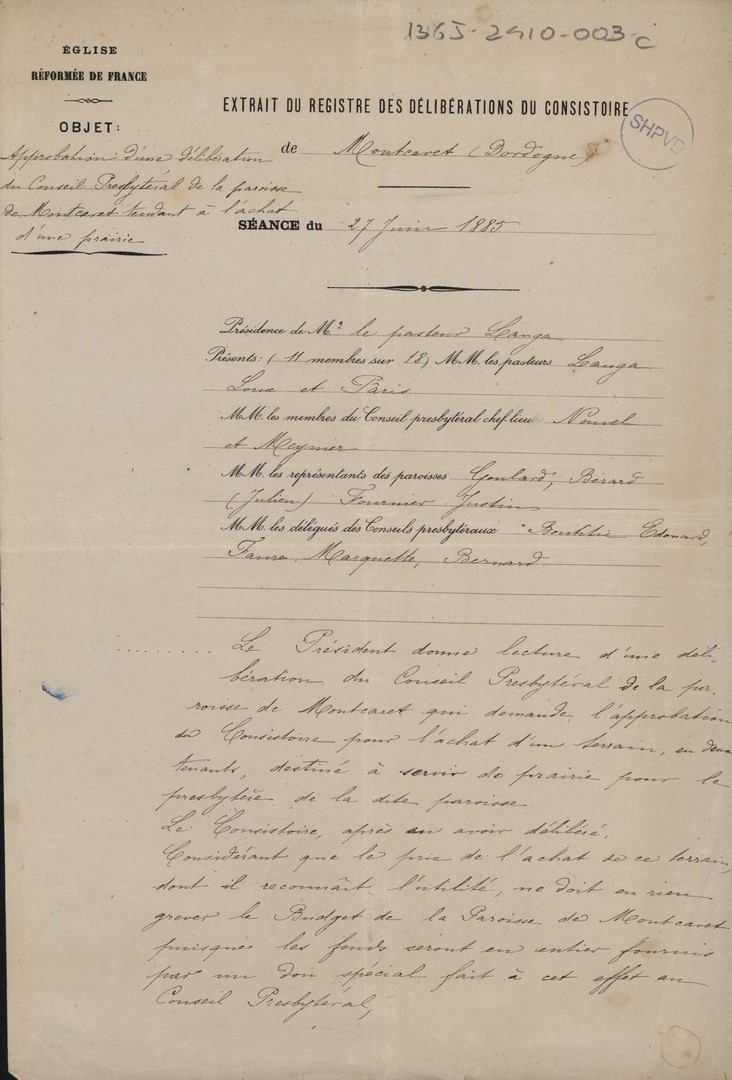 1365-2410-003-c
ÉGLISE
RÉFORMÉE DE FRANCE
OBJET:
Approbation d'une délibération
du Conseil Presbytéral de la paroisse
de Montcaret tendant à l'achat
d'une prairie
EXTRAIT DU REGISTRE DES DÉLIBÉRATIONS DU CONSISTOIRE
SHPVD
de Montcaret (Dordogne)
SÉANCE du 27 Juin 1885
Présidence de Mr le pasteur Langa
Présents: (11 membres sur 18) MM. les pasteurs Langa
Loux et Pâris
MM. les membres du Conseil presbytéral chef-lieu Nouvel
et Meynier
MM. les représentants des paroisses Goulard, Bérard
(Julien) Fournier Justin
MM. les délégués des Conseils presbytéraux Edouard,
Faure Marquette, Bernard
Le Président donne lecture d'une déli-
bération du Conseil Presbytéral de la pa-
roisse de Montcaret qui demande l'approbation
du Consistoire pour l'achat d'un terrain, en deux
tenants, destiné à servir de prairie pour le
presbytère de la dite paroisse
Le Consistoire, après en avoir délibéré,
Considérant que le prix de l'achat de ce terrain,
dont il reconnaît l'utilité, ne doit en rien
grever le Budget de la Paroisse de Montcaret
puisque les fonds seront en entier fournis
par un don spécial fait à cet effet au
Conseil Presbytéral,